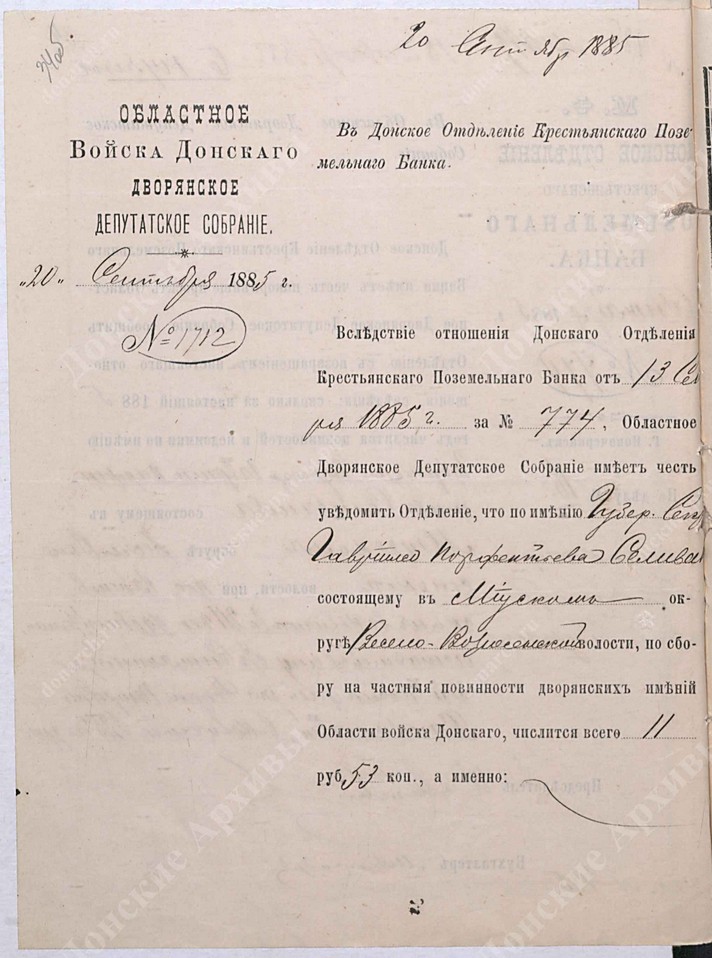 20 Сентябр 1885
ОБЛАСТНОЕ
ВОЙСКА ДОНСКАГО
ДВОРЯНСКОЕ
ДЕПУТАТСКОЕ СОБРАНІЕ.
„20„ Сентября 1885 г.
№ 1712
Въ Донское Отдѣленіе Крестьянскаго Позе-
мельнаго Банка.
Вслѣдствіе отношенія Донскаго Отдѣленія
Крестьянскаго Поземельнаго Банка отъ 13 Сен
ря 1885 г. за № 774, Областное
Дворянское Депутатское Собраніе имѣетъ честь
увѣдомить Отдѣленіе, что по имѣнію Губер. Секр
Гаврiила Парфентьева Селива
состоящему въ Міускомъ ок-
ругѣ Весело-Вознесенской волости, по сбо-
ру на частныя повинности дворянскихъ имѣній
Области войска Донскаго, числится всего 11
руб 53 коп., а именно:
Донские Архивы